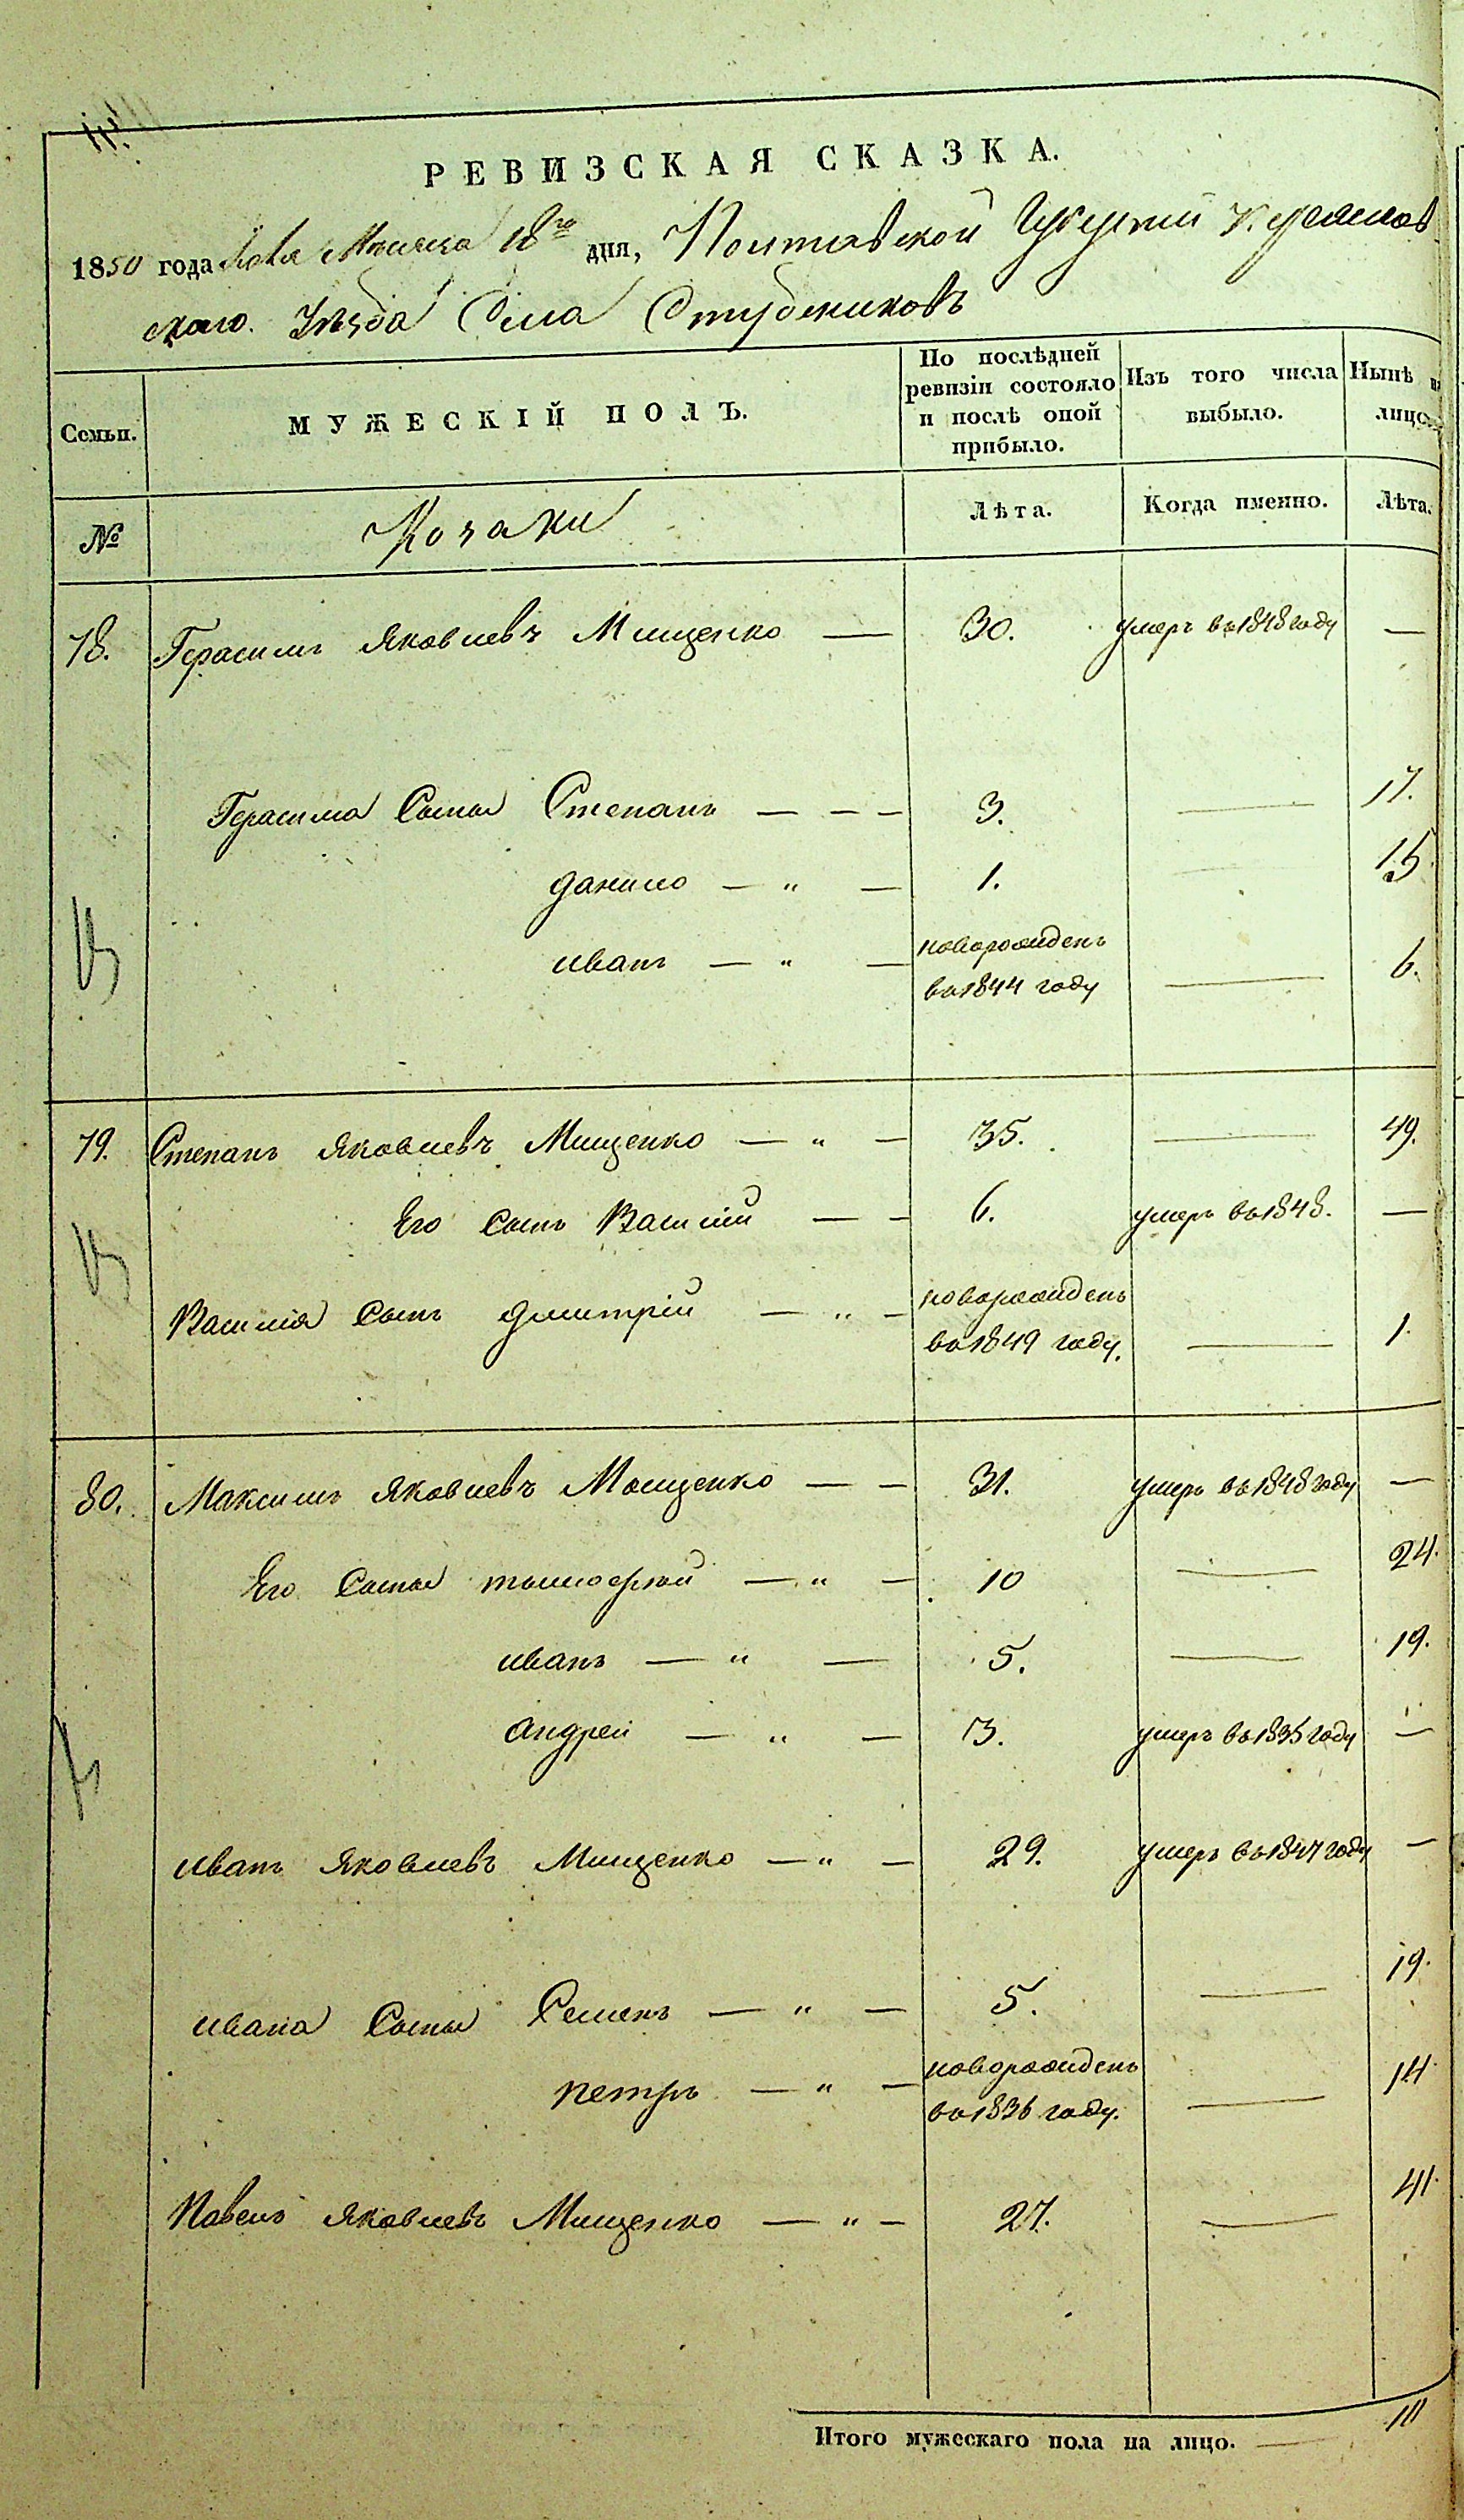 РЕВИЗСКАЯ СКАЗКА.
1850 года Мѣсяца 18го дня, Полтавской Губерніи Кременчуг
скаго Уѣзда Села
Семьи. МУЖЕСКІЙ ПОЛЪ. По послѣдней ревизіи состояло и послѣ оной прибыло. Изъ того числа выбыло. Нынѣ на лицо
№ Козаки Лѣта. Когда именно. Лѣта.
78. Герасимъ Яковлевъ Мищенко — 30. умеръ въ 1848 году —
Герасима Сыны Степанъ — — — 3. — 17.
Данило — „ — 1. — 15.
иванъ — „ — новорожденъ
въ 1844 году — 6.
79. Степанъ Яковлевъ Мищенко — „ — 35. — 49.
Его Сынъ Василій — — 6. умеръ въ 1848. —
Василія Сынъ Дмитрій — „ — новорожденъ
въ 1849 году. — 1.
80. Максимъ Яковлевъ Мищенко — — 31. умеръ въ 1848 году —
Его Сыны тимофѣй — „ — 10 — 24.
иванъ — „ — 5. — 19.
андрей — „ — 3. умеръ въ 1835 году —
иванъ Яковлевъ Мищенко — „ — 29. умеръ въ 1847 году —
ивана Сыны Семенъ — „ — 5. — 19.
петръ — „ — новорожденъ
въ 1836 году. — 14.
Павелъ Яковлевъ Мищенко — „ — 27. — 41.
Итого мужескаго пола на лицо. — 10